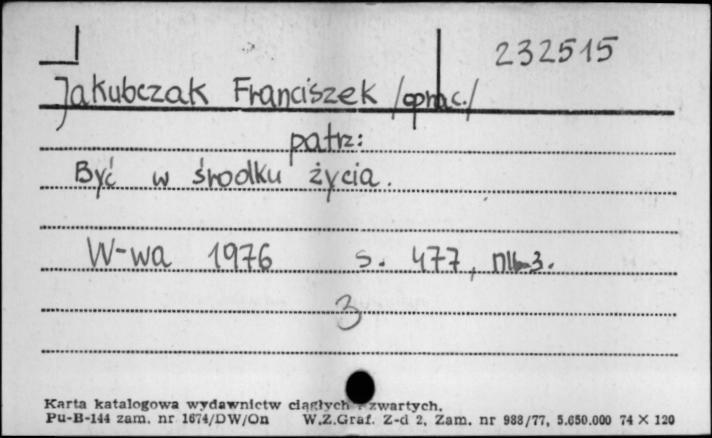 232515
Jakubczak Franciszek /oprac./
patrz:
Być w środku życia.
W-wa 1976 s. 477, nlb. 3.
3
Karta katalogowa wydawnictw ciągłych i zwartych.
Pu-B-144 zam. nr 1674/DW/On W.Z.Graf. Z-d 2, Zam. nr 988/77, 5.650.000 74 X 120